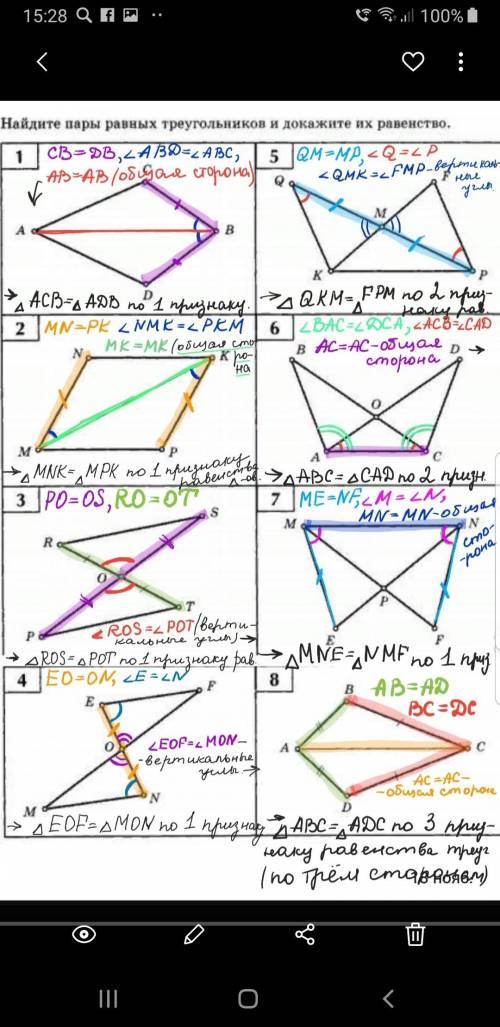 15:28
100%
Найдите пары равных треугольников и докажите их равенство.
1
CB=DB, ∠ABD=∠ABC,
AB=AB (общая сторона)
C
A
B
D
→ △ACB=△ADB по 1 признаку.
5
QM=MP, ∠Q=∠P
∠QMK=∠FMP-вертикаль
ные
углы.
Q
F
M
K
P
→ △QKM=△FPM по 2 приз-
наку рав.
2
MN=PK ∠NMK=∠PKM
MK=MK (общая сто
ро-
на
N
K
M
P
→ △MNK=△MPK по 1 признаку
равенства
△-ов.
6
∠BAC=∠DCA, ∠ACB=∠CAD
AC=AC-общая
сторона
→
B
D
O
A
C
→ △ABC=△CAD по 2 призн.
3
PO=OS, RO=OT
S
R
O
T
P
∠ROS=∠POT (верти-
кальные углы) →
→ △ROS=△POT по 1 признаку рав
7
ME=NF, ∠M=∠N,
MN=MN-общая
сто-
рона
M
N
P
E
F
→ △MNE=△NMF по 1 приз
4
EO=ON, ∠E=∠N
F
E
O
∠EOF=∠MON-
-вертикальные
углы →
N
M
→ △EOF=△MON по 1 признаку
8
AB=AD
BC=DC
B
A
C
D
AC=AC-
-общая сторона
→ △ABC=△ADC по 3 приз-
наку равенства треуг
(по трём сторонам)